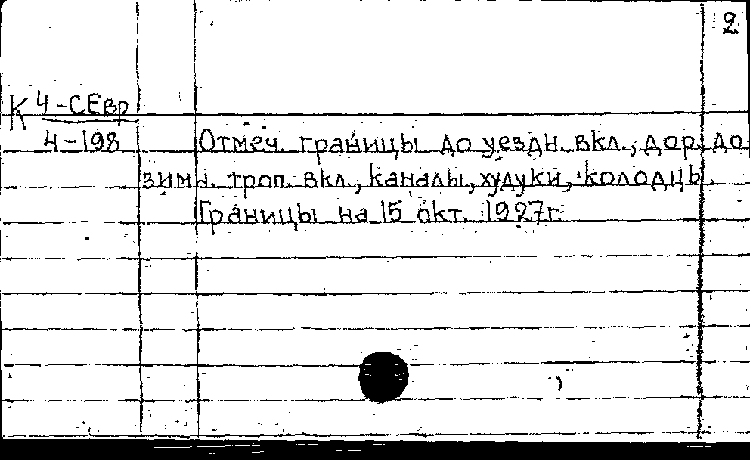 2
К 4-СЕвр
4-198
Отмеч. границы до уездн. вкл., дор. до
зимн. троп. вкл., каналы, худуки, колодцы.
Границы на 15 окт. 1927г.